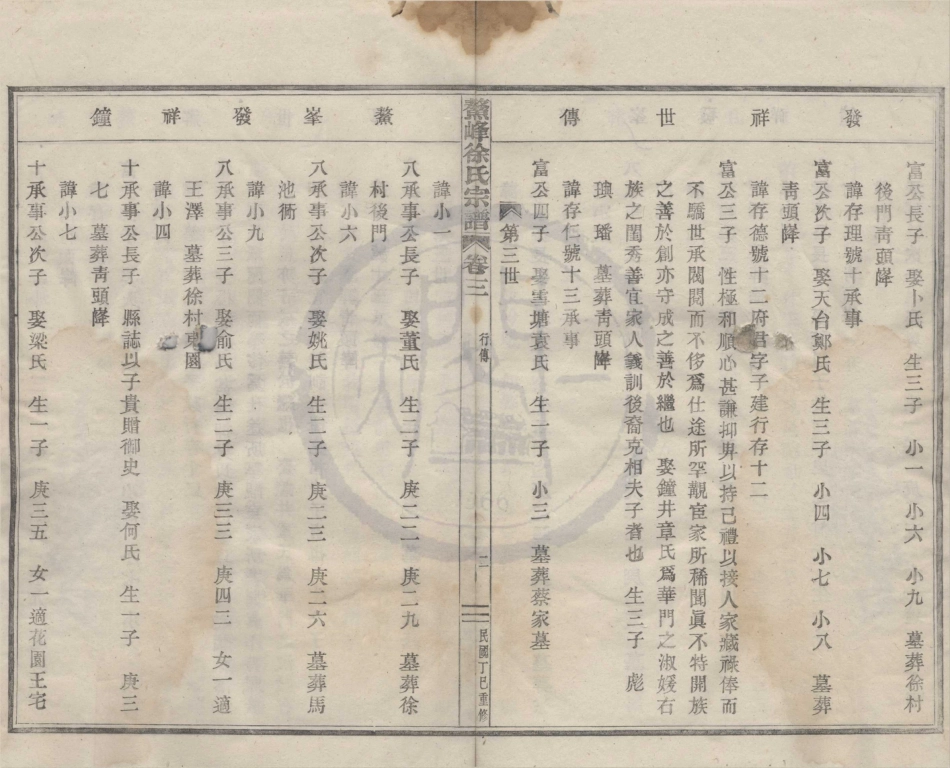 發祥世傳
富公長子 娶卜氏 生三子 小一 小六 小九 墓葬徐村
後門靑頭㟁
諱存理號十承事
富公次子 娶天台鄭氏 生三子 小四 小七 小八 墓葬
靑頭㟁
諱存德號十二府君字子建行存十二
富公三子 性極和順心甚謙抑畀以持己禮以接人家藏祿俸而
不驕世承閥閱而不侈爲仕途所罕觀宦家所稀聞眞不特開族
之善於創亦守成之善於繼也 娶鐘井章氏爲華門之淑媛右
族之閨秀善宜家人義訓後裔克相夫子者也 生三子 彪
璵 璠 墓葬靑頭㟁
諱存仁號十三承事
富公四子 娶雪塘袁氏 生一子 小三 墓葬蔡家墓
第三世
鰲峰徐氏宗譜 卷三 行傳 二 民國丁巳重修
鰲峯發祥鐘
諱小一
八承事公長子 娶董氏 生二子 庚二二 庚二九 墓葬徐
村後門
諱小六
八承事公次子 娶姚氏 生二子 庚二三 庚二六 墓葬馬
池衕
諱小九
八承事公三子 娶俞氏 生二子 庚三三 庚四三 女一適
王澤 墓葬徐村東園
諱小四
十承事公長子 縣誌以子貴贈御史 娶何氏 生一子 庚三
七 墓葬靑頭㟁
諱小七
十承事公次子 娶梁氏 生一子 庚三五 女一適花園王宅